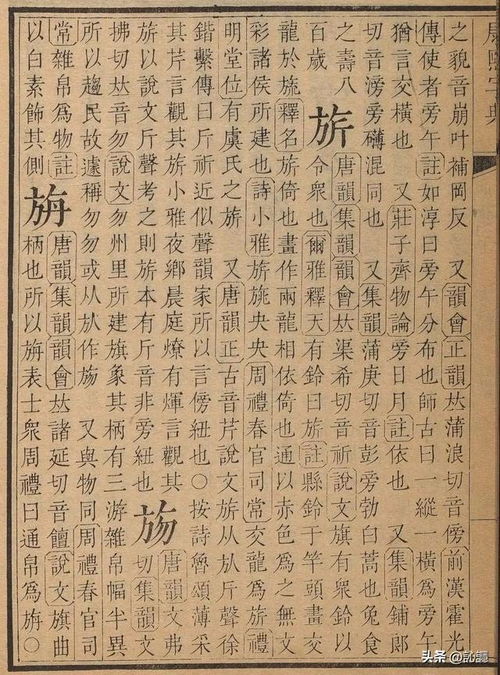 之貌音崩叶補岡反 又韻會正韻𠀤蒲浪切音傍前漢霍光
傳使者旁午註如淳曰旁午分布也師古曰一縱一橫爲旁午
猶言交橫也 又莊子齊物論旁日月註依也 又集韻鋪郞
切音滂旁礴混同也 又集韻蒲庚切音彭旁勃白蒿也兔食
之壽八
百歲
旂
唐韻集韻韻會𠀤渠希切音祈說文旗有衆鈴以
令衆也爾雅釋天有鈴曰旂註縣鈴于竿頭畫交
龍於旒釋名旂倚也畫作兩龍相依倚也通以赤色爲之無文
彩諸侯所建也詩小雅旂旐央央周禮春官司常交龍爲旂禮
明堂位有虞氏之旂 又唐韻正古音芹說文旂从㫃斤聲徐
鍇繫傳曰斤祈近似聲韻家所以言傍紐也○按詩魯頌薄采
其芹言觀其旂小雅夜鄉晨庭燎有煇言觀其
旂以說文斤聲考之則旂本有斤音非旁紐也
𣃦
唐韻文弗
切集韻文
拂切𠀤音勿說文勿州里所建旗象其柄有三游雜帛幅半異
所以趨民故遽稱勿勿或从㫃作𣃦 又與物同周禮春官司
常雜帛爲物註
以白素飾其側
旃
唐韻集韻韻會𠀤諸延切音饘說文旗曲
柄也所以旃表士衆周禮曰通帛爲旃○